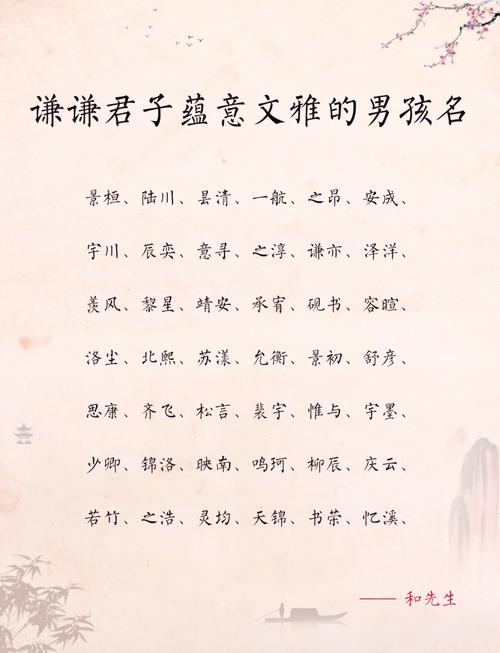 谦谦君子蕴意文雅的男孩名
景桓、陆川、昙清、一航、之昂、安成、
宇川、辰奕、意寻、之淳、谦亦、泽洋、
羡风、黎星、靖安、承宥、砚书、容暄、
洛尘、北熙、苏漾、允衡、景初、舒彦、
思康、齐飞、松言、裴宇、惟与、宇墨、
少卿、锦洛、映南、鸣珂、柳辰、庆云、
若竹、之浩、灵均、天锦、书荣、忆溪、
—— 和先生